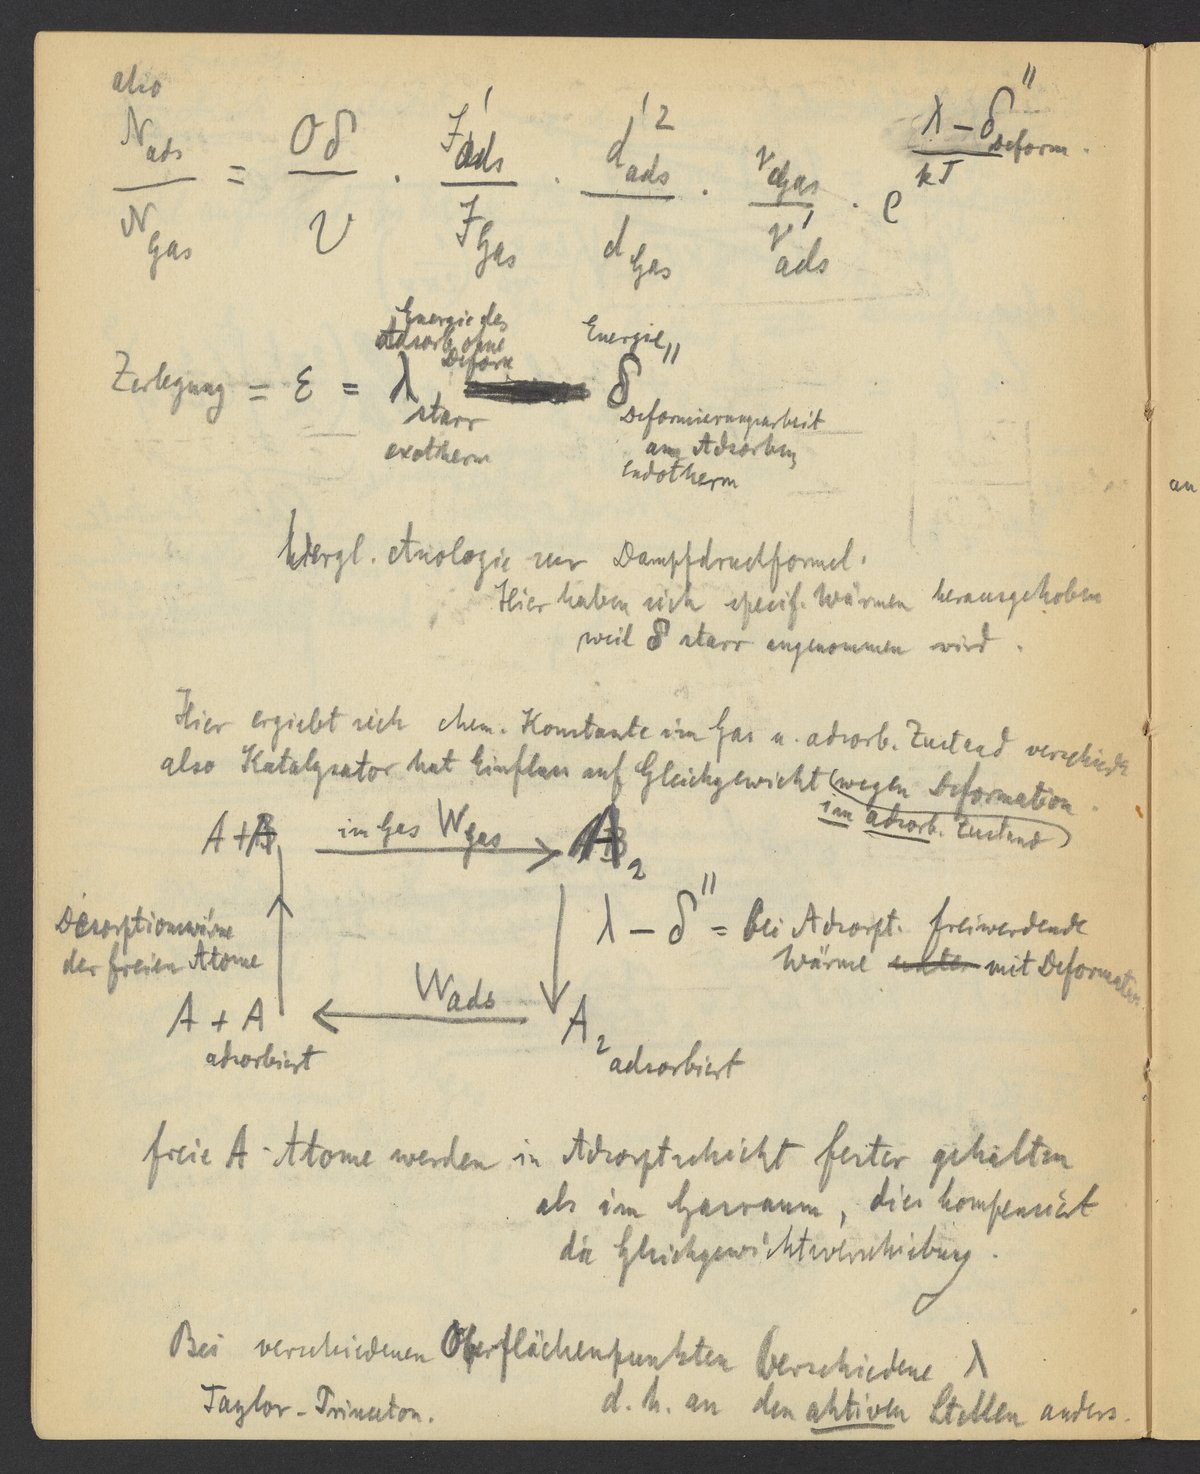 also
N_ads / N_Gas = Oδ / V · J'_ads / J_Gas · d'²_ads / d_Gas · ν_Gas / ν'_ads · e^((λ − δ''_Deform.) / kT)
Energie des Adsorb. ohne Deform
Energie
Zerlegung = ε = λ δ''
starr
exotherm
Deformierungsarbeit
am Adsorben,
endotherm
Vergl. Analogie zur Dampfdruckformel.
Hier haben sich specif. Wärmen herausgehoben
weil δ starr angenommen wird.
an
Hier ergiebt sich chem. Konstante im Gas u. adsorb. Zustand verschieden
also Katalysator hat Einfluss auf Gleichgewicht (wegen Deformation.
im adsorb. Zustand)
A + A im Gas W_Gas → A₂
Desorptionswärme
der freien Atome
λ − δ'' = bei Adsorpt. freiwerdende
Wärme unter mit Deformation
A + A ← W_ads A₂
adsorbiert adsorbiert
freie A-Atome werden in Adsorptschicht fester gehalten
als im Gasraum, dies kompensiert
die Gleichgewichtsverschiebung.
Bei verschiedenen Oberflächenpunkten verschiedene λ
Taylor-Princeton. d.h. an den aktiven Stellen anders.